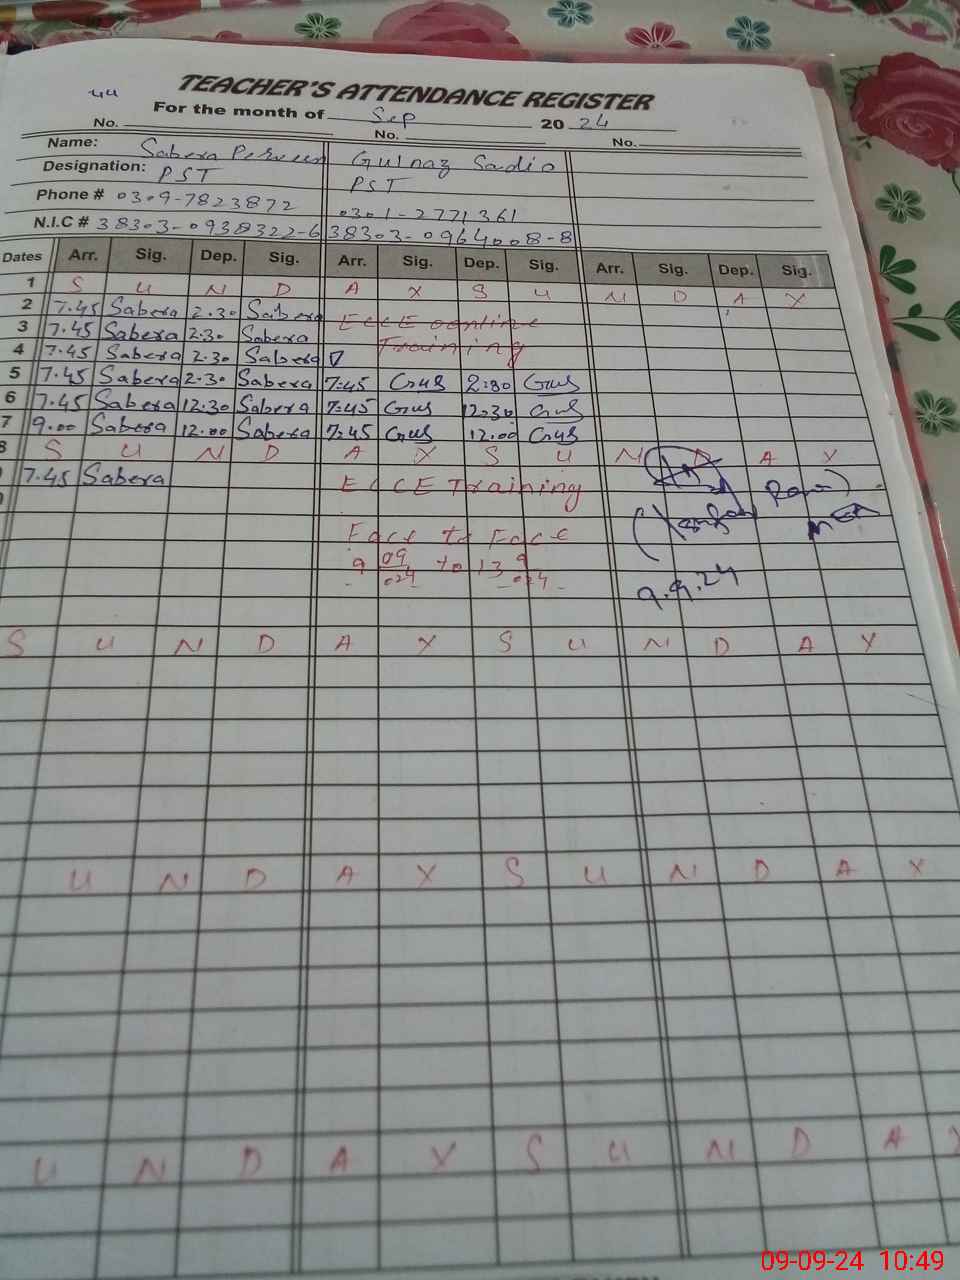 TEACHER'S ATTENDANCE REGISTER
44 For the month of Sep 2024
No. No. No.
Name: Sabera Perveen Gulnaz Sadio
Designation: PST PST
Phone # 0309-7823872 0301-2771361
N.I.C # 38303-0938322-6 38303-0964008-8
Dates Arr. Sig. Dep. Sig. Arr. Sig. Dep. Sig. Arr. Sig. Dep. Sig.
1 S U N D A Y S U N D A Y
2 7.45 Sabera 2.30 Sabera ECCE oonline
3 7.45 Sabera 2.30 Sabera Training
4 7.45 Sabera 2.30 Sabera
5 7.45 Sabera 2.30 Sabera 7.45 Gus 2:30 Gus
6 7.45 Sabera 12.30 Sabera 7.45 Gus 12.30 Gus
7 9.00 Sabera 12.00 Sabera 7.45 Gus 12.00 Gus
8 S U N D A Y S U N D A Y
7.45 Sabera ECCE Training
Face to Face
9 09/024 to 13 9/024
9.9.24
S U N D A Y S U N D A Y
U N D A Y S U N D A Y
U N D A Y S U N D A Y
09-09-24 10:49